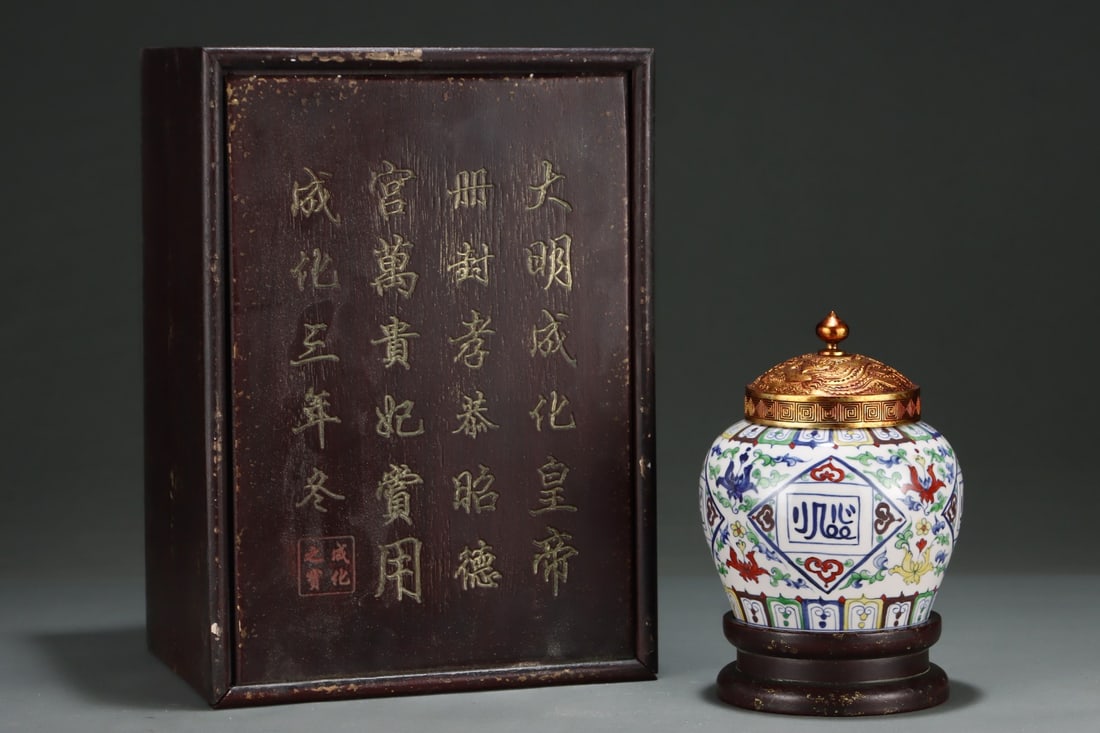 大明成化皇帝
冊封孝恭昭德
宮萬貴妃賞用
成化三年冬
成化
之寶